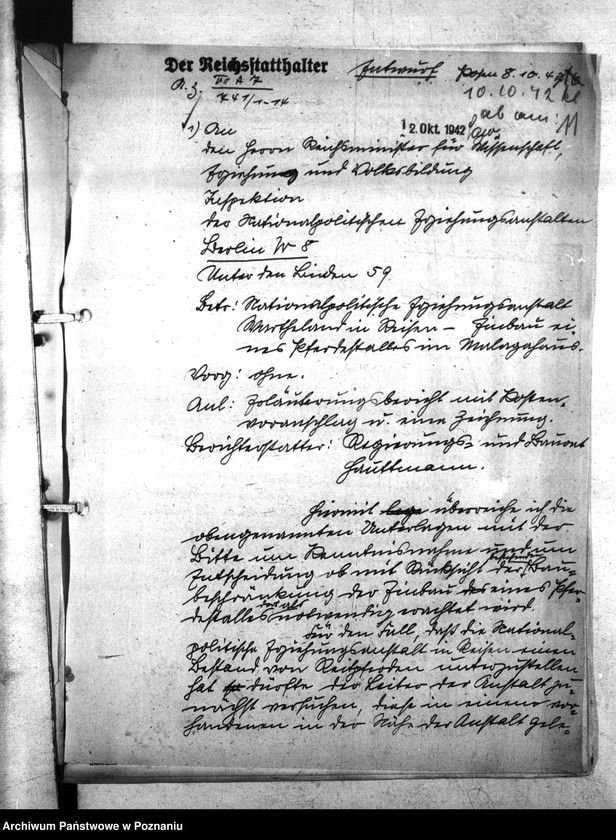 Der Reichsstatthalter Entwurf Posen 8.10.42
A.Z. III A 7
K 41/1-14
10.10.42
ab am:
12. Okt. 1942
1) An
den Herrn Reichsminister für Wissenschaft,
Erziehung und Volksbildung
Inspektion
der Nationalpolitischen Erziehungsanstalten
Berlin W 8
Unter den Linden 59
Betr: Nationalpolitische Erziehungsanstalt
Wartheland in Reisen – Einbau ei-
nes Pferdestalles im Malagahaus.
Vorg: ohne.
Anl: Erläuterungsbericht mit Kosten-
voranschlag u. eine Zeichnung.
Berichterstatter: Regierungs- und Baurat
Hauttmann.
Hiermit lege überreiche ich die
obengenannten Unterlagen mit der
Bitte um Kenntnisnahme und um
Entscheidung ob mit Rücksicht der bestehenden Bau-
beschränkung der Einbau des eines Pfer-
destalles dort als notwendig erachtet wird.
Für den Fall, daß die National-
politische Erziehungsanstalt in Reisen einen
Bestand von Reitpferden unterzustellen
hat dürfte der Leiter der Anstalt zu-
nächst versuchen, diese in einem vor-
handenen in der Nähe der Anstalt gele-
Archiwum Państwowe w Poznaniu